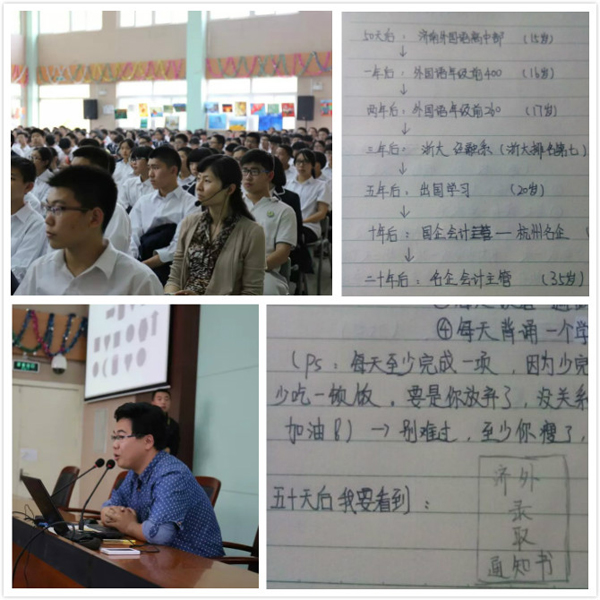 50天后：济南外国语高中部 (15岁)
一年后：外国语年级前400 (16岁)
两年后：外国语年级前260 (17岁)
三年后：浙大 金融系 (浙大排名第七)
五年后：出国学习 (20岁)
十年后：国企会计主管 — 杭州名企 (
二十年后：名企会计主管 (35岁)
④每天背诵一个学
(ps：每天至少完成一项，因为少完
少吃一顿饭，要是你放弃了，没关系
加油B) → 别难过，至少你瘦了，
五十天后我要看到：
济外
录
取
通知书